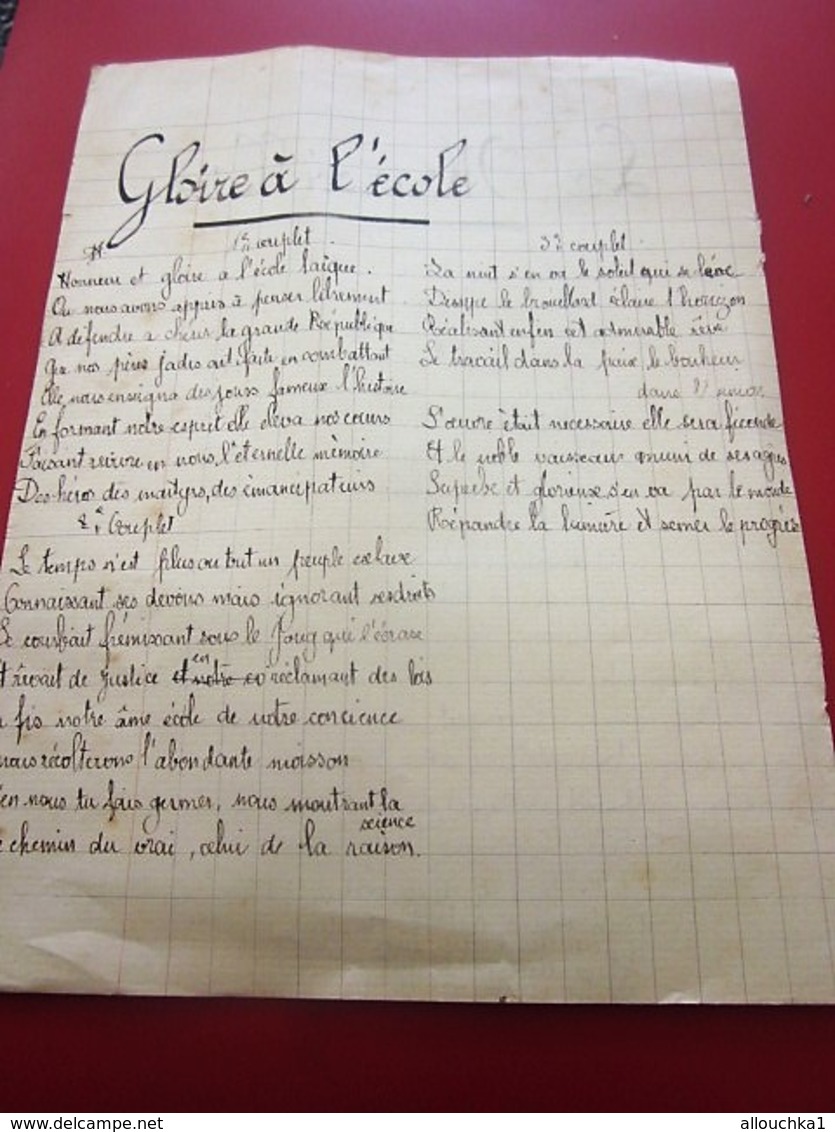 Gloire à l'école
1er couplet.
Honneur et gloire a l'école laïque.
Ou nous avons appris à penser librement
A défendre a cherir la grande République
Que nos pères jadis ont faite en combattant
Elle nous enseigna des jours fameux l'histoire
En formant notre esprit elle éleva nos cœurs
Faisant revivre en nous l'éternelle mémoire
Des héros des martyrs, des émancipateurs
2e Couplet
Le temps n'est plus ou tout un peuple esclave
Connaissant ses devoirs mais ignorant ses droits
Se courbait frémissant sous le Joug qui l'écrase
rêvait de Justice et notre en réclamant des lois
fis notre âme école de notre concience
nous récolterons l'abondante moisson
en nous tu fais germer, nous montrant la
science
chemin du vrai, celui de la raison.
3e couplet.
La nuit s'en va le soleil qui se lève
Dissipe le brouillard éclaire l'horizon
Réalisant enfin cet admirable rêve
Le travail dans la paix, le bonheur
dans l'union
L'œuvre était necessaire elle sera féconde
Et le noble vaisseau muni de ses agrès
Superbe et glorieux s'en va par le monde
Répandre la lumière et semer le progrès
DELCAMPE.NET
allouchka1